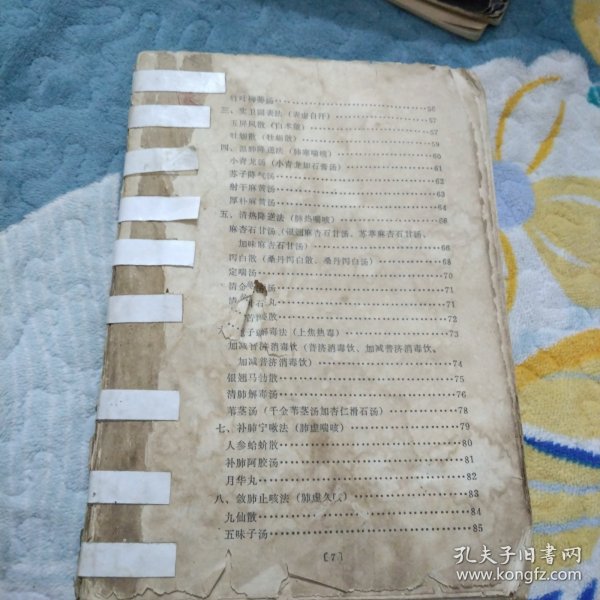 竹叶柳蒡汤 56
三、实卫固表法（表虚自汗） 57
玉屏风散（白术散） 57
牡蛎散（牡蛎散） 59
四、温肺降逆法（肺寒喘咳） 60
小青龙汤（小青龙加石膏汤） 61
苏子降气汤
射干麻黄汤
厚朴麻黄汤 64
五、清热降逆法（肺热喘咳） 66
麻杏石甘汤（银翘麻杏石甘汤、苏葶麻杏石甘汤、
加味麻杏石甘汤） 66
泻白散（桑丹泻白散、桑丹泻白汤） 68
定喘汤 70
清金 汤 71
石丸 71
散 72
解毒法（上焦热毒） 73
加减普济消毒饮（普济消毒饮、加减普济消毒饮、
加减普济消毒饮） 74
银翘马勃散 75
清肺解毒汤 76
苇茎汤（千金苇茎汤加杏仁滑石汤） 78
七、补肺宁嗽法（肺虚喘咳） 79
人参蛤蚧散 80
补肺阿胶汤 81
月华丸 82
八、敛肺止咳法（肺虚久 ） 83
九仙散 84
五味子汤 85
〔7〕
孔夫子旧书网
www.kongfz.com